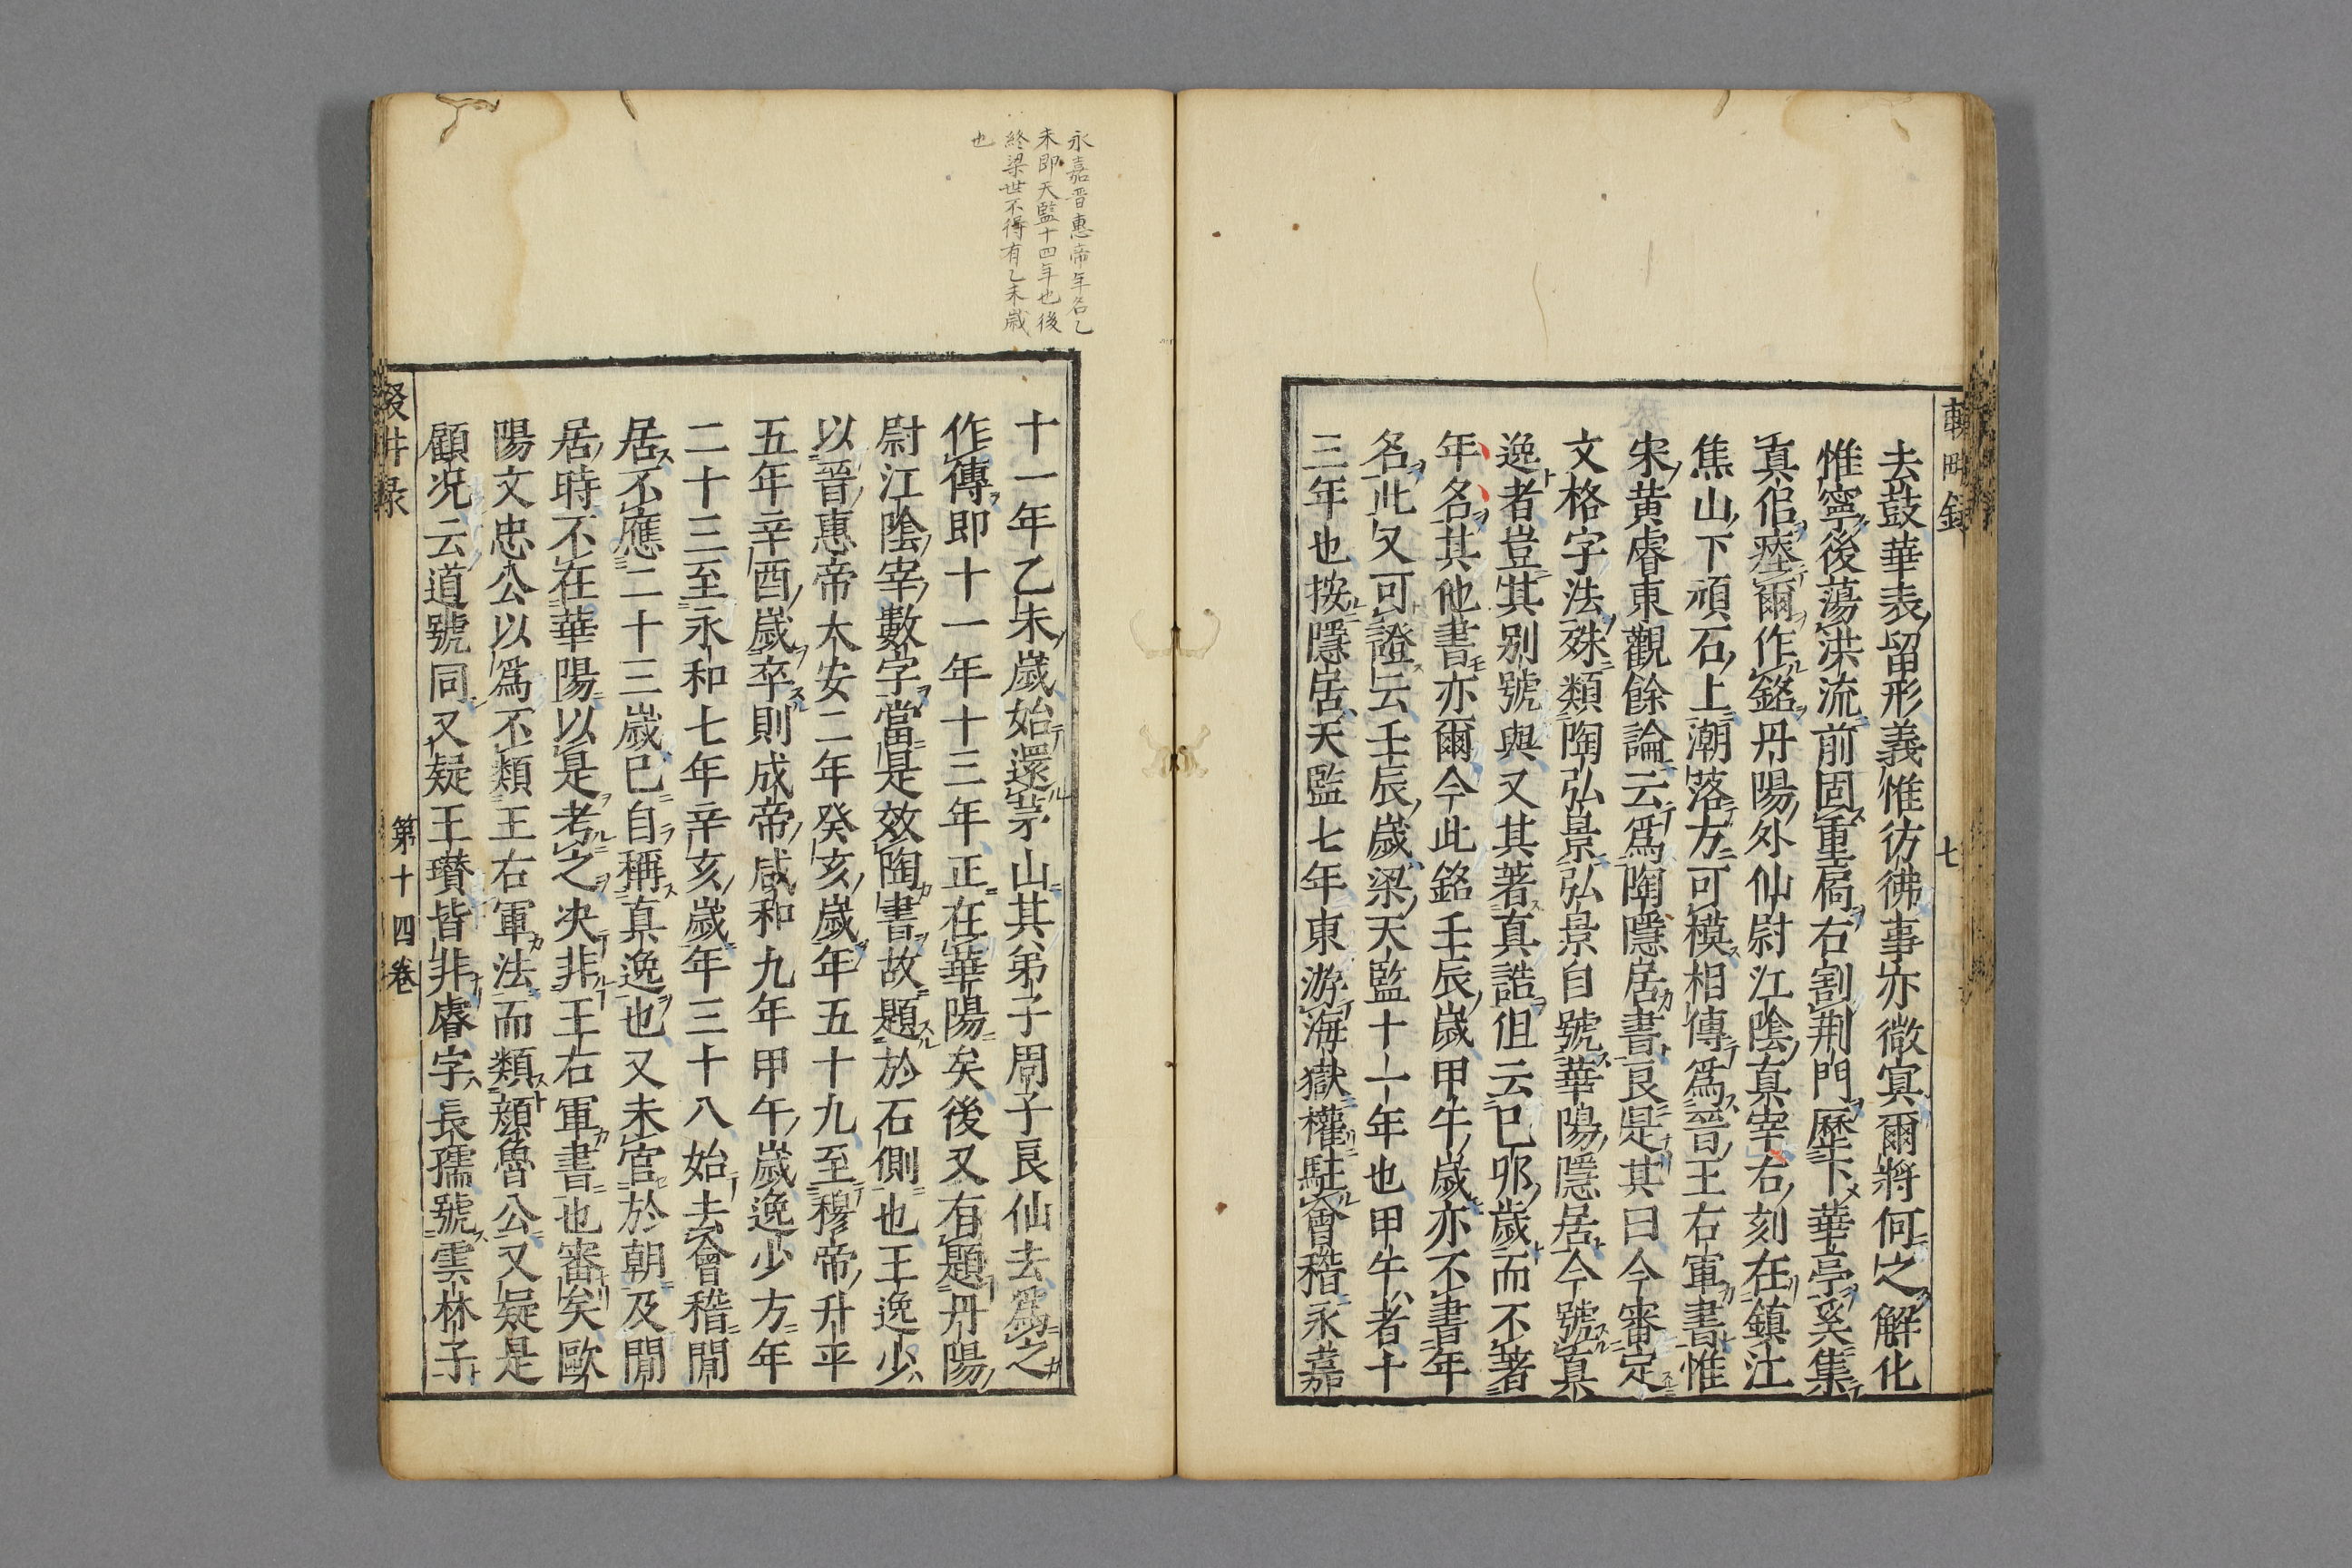 輟畊錄
七
去鼓華表留形義惟彷彿事亦微冥爾將何之解化
惟寧後蕩洪流前固重扃右割荆門歷下華亭奚集
真侣瘞爾作銘丹陽外仙尉江陰真宰右刻在鎮江
焦山下頑石上潮落方可模相傳爲晉王右軍書惟
宋黄睿東觀餘論云爲陶隱居書良是其曰今審定
文格字法殊類陶弘景弘景自號華陽隱居今號真
逸者豈其别號與又其著真誥但云已卯歲而不著
年名其他書亦爾今此銘壬辰歲甲午歲亦不書年
名此又可證云壬辰歲梁天監十一年也甲午者十
三年也按隱居天監七年東游海嶽權駐會稽永嘉
永嘉晋惠帝年名乙
未即天監十四年也後
終梁世不得有乙未歳
也
十一年乙未歲始還茅山其弟子周子良仙去爲之
作傳即十一年十三年正在華陽矣後又有題丹陽
尉江陰宰數字當是效陶書故題於石側也王逸少
以晉惠帝太安二年癸亥歲年五十九至穆帝升平
五年辛酉歲卒則成帝咸和九年甲午歲逸少方年
二十三至永和七年辛亥歲年三十八始去會稽閒
居不應二十三歲已自稱真逸也又未官於朝及閒
居時不在華陽以是考之决非王右軍書也審矣歐
陽文忠公以爲不類王右軍法而類顔魯公又疑是
顧况云道號同又疑王瓚皆非睿字長孺號雲林子
輟畊录
第十四卷